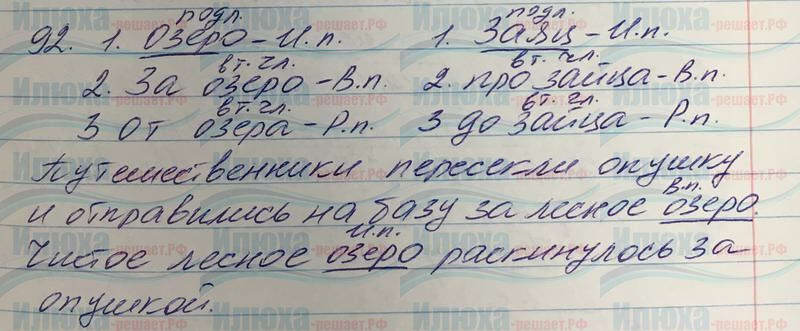 подл. подл.
92. 1. Озеро - И.п. 1. Заяц - И.п.
вт. чл. вт. чл.
2. За озеро - В.п. 2. про зайца - В.п.
вт. чл. вт. гл.
3 От озера - Р.п. 3 до зайца - Р.п.
Путешественники пересекли опушку
в.п.
и отправились на базу за лесное озеро.
И.п.
Чистое лесное озеро раскинулось за
опушкой.
Илюха-решает.РФ